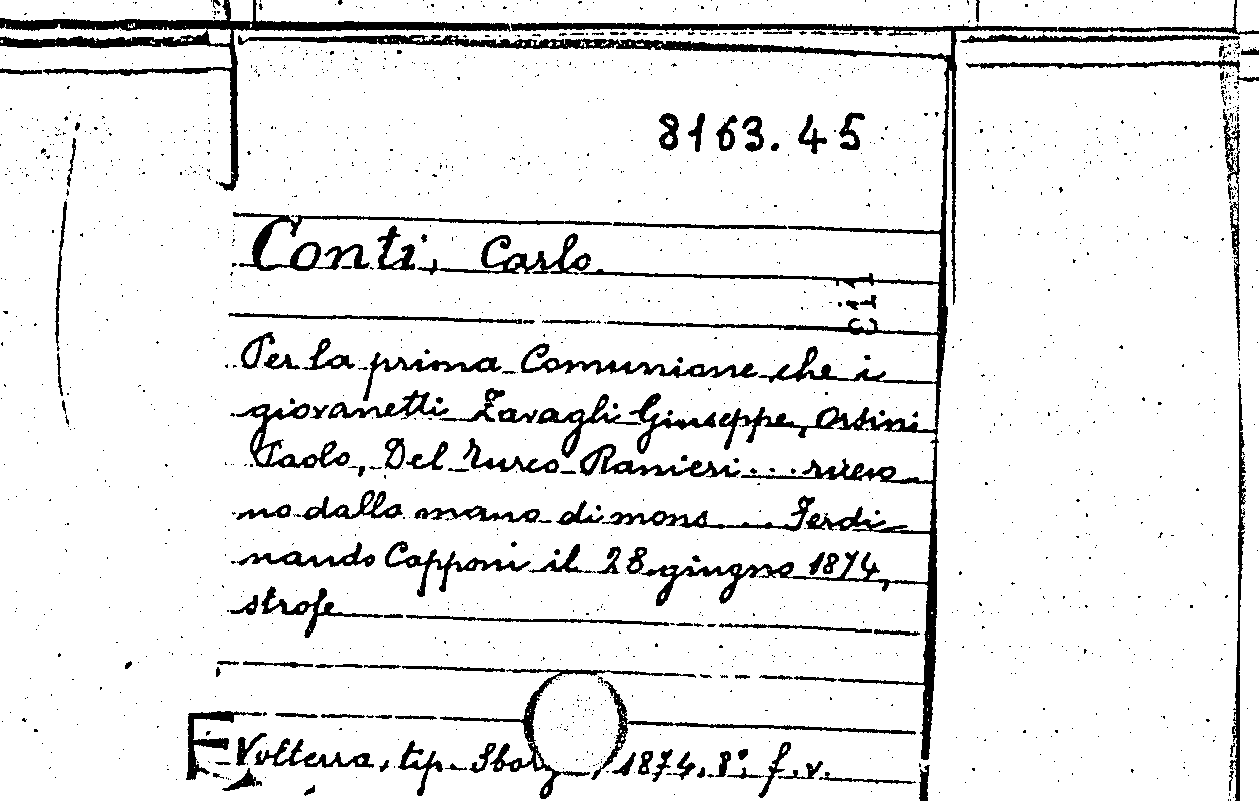 8163.45
Conti, Carlo.
113
Per la prima Comunione che i
giovanetti Zavagli Giuseppe, Orsini
Paolo, Del Turco Ranieri... ricevo
no dalla mano di mons.... Ferdi
nando Capponi il 28 giugno 1874,
strofe
Volterra, tip. 1874. 8°, f. v.